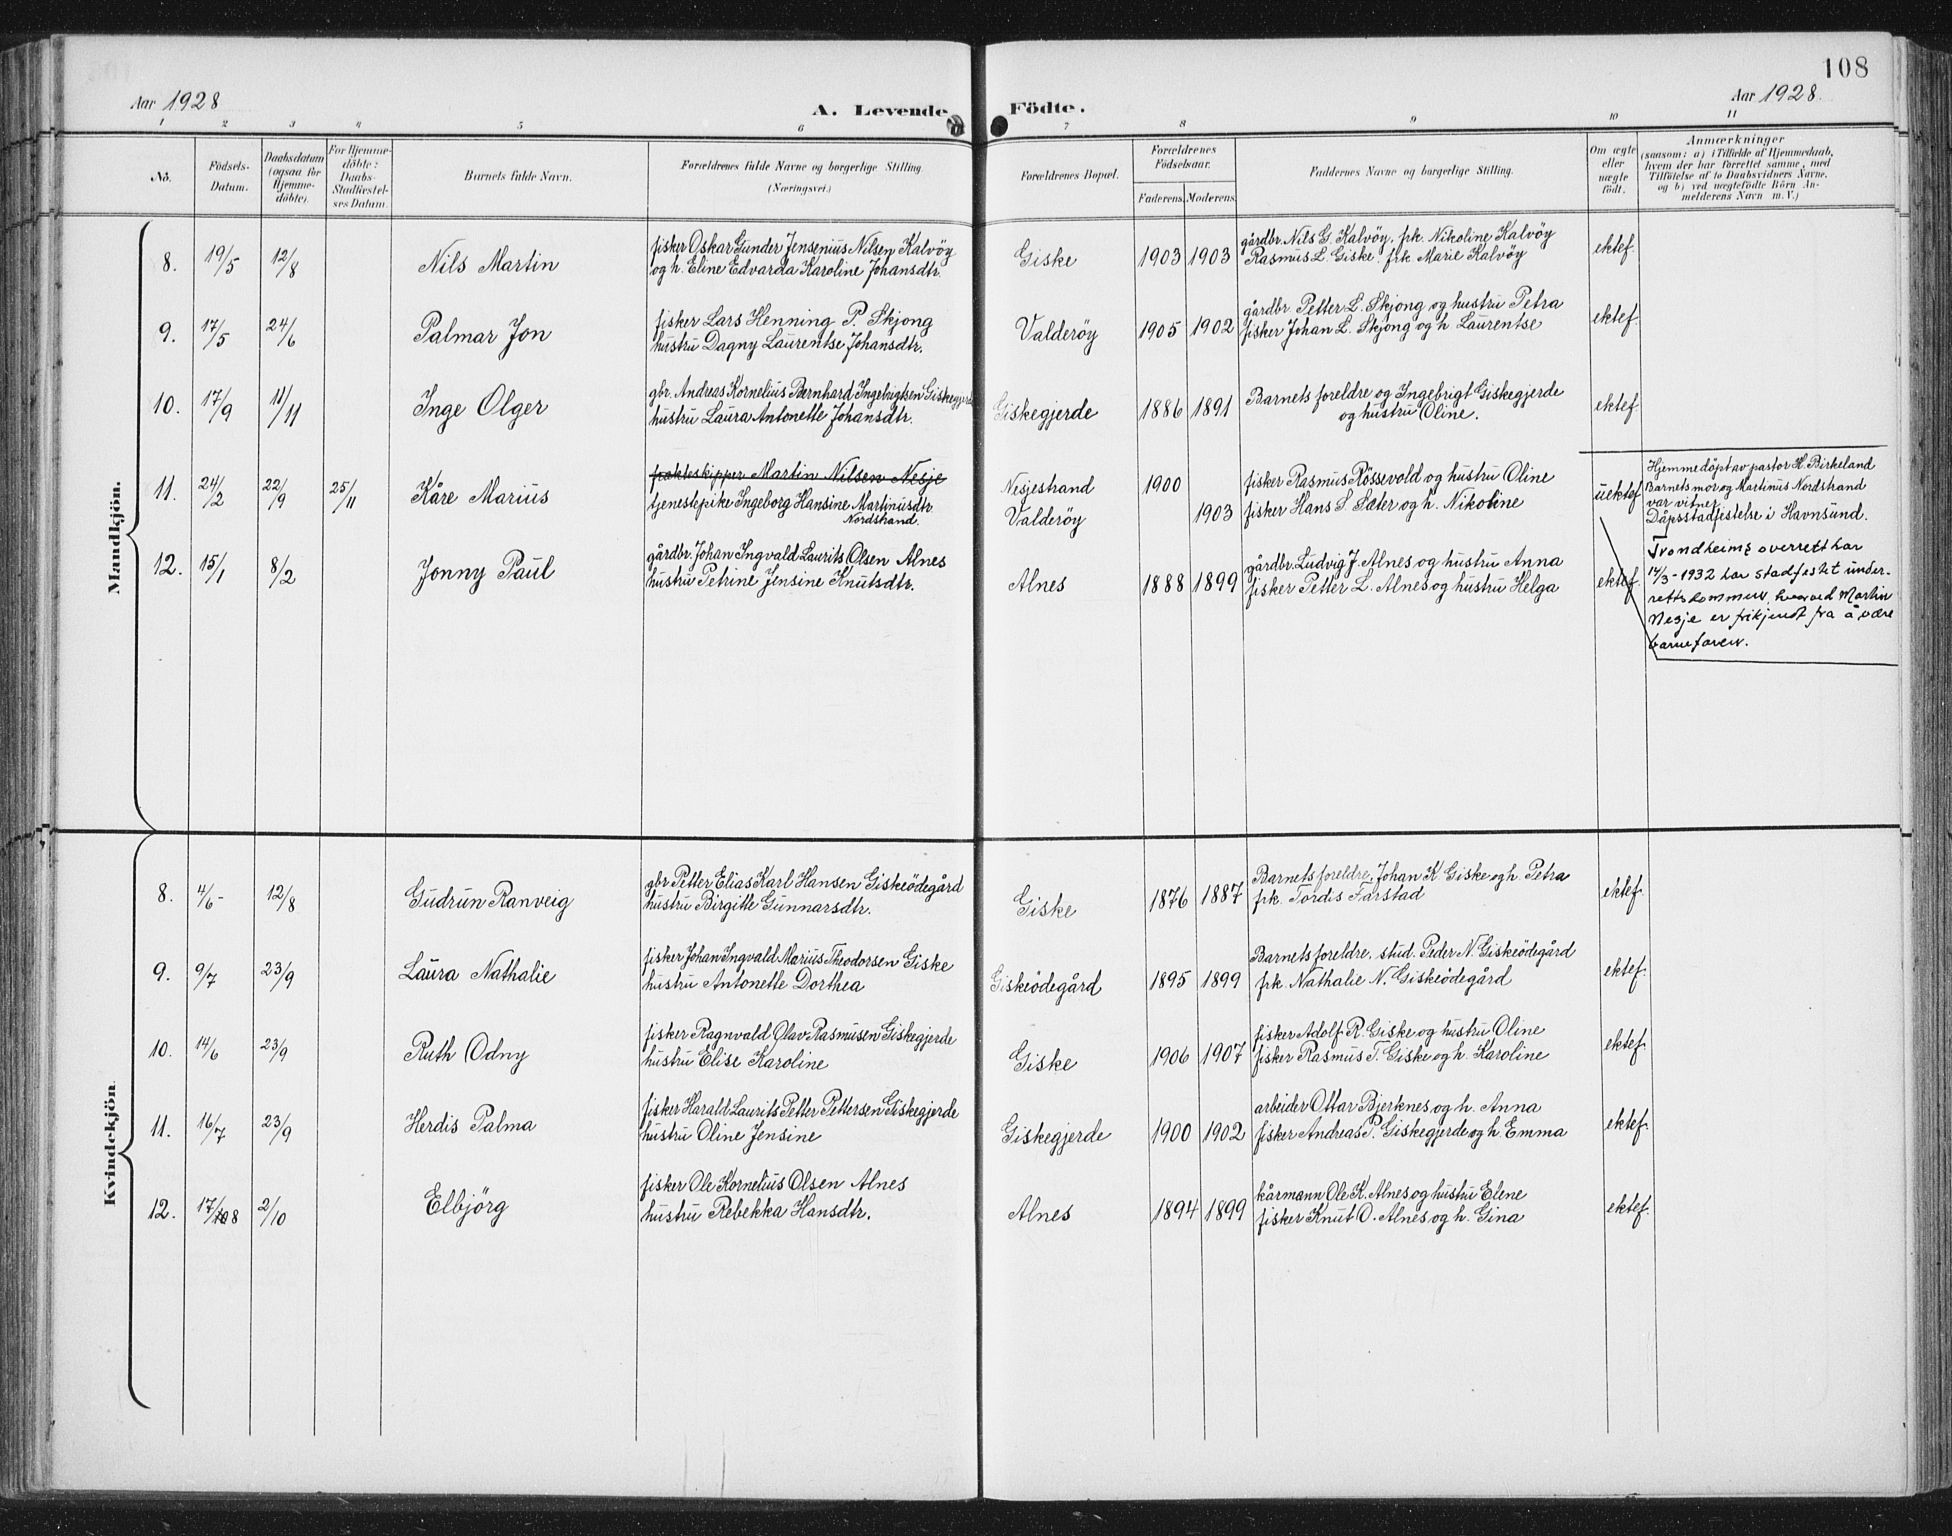 108
Aar 1928
A. Levende Födte.
Aar 1928.
1 2 3 4 5 6 7 8 9 10 11
No.
Födsels-Datum.
Daabsdatum (ogsaa for Hjemme-döbte).
For Hjemme-döbte: Daabs-Stadfæstel-ses Datum.
Barnets fulde Navn.
Forældrenes fulde Navne og borgerlige Stilling.
(Næringsvei.)
Forældrenes Bopæl.
Forældrenes Födselsaar.
Faderens. Moderens.
Faddernes Navne og borgerlige Stilling.
Om ægte eller uægte födt.
Anmærkninger
(saasom: a) i Tilfælde af Hjemmedaab, hvem der har forrettet samme, med Tilföielse af to Daabsvidners Navne, og b) ved uægtefödte Börn An-melderens Navn m. V.)
Mandkjön.
8. 19/5 12/8 Nils Martin
fisker Oskar Gunder Jensenius Nilsen Kalvöy
og h. Eline Edvarda Karoline Johansdtr.
Giske 1903 1903
gårdbr. Nils G. Kalvöy, frk. Nikoline Kalvöy
Rasmus L. Giske. frk Marie Kalvöy
ektef.
9. 17/5 24/6 Palmar Jon
fisker Lars Henning P. Skjong
hustru Dagny Laurentse Johansdtr.
Valderöy 1905 1902
gårdbr. Petter L. Skjong og hustru Petra
fisker Johan L. Skjong og h. Laurentse
ektef.
10. 17/9 11/11 Inge Olger
gbr. Andreas Kornelius Bernhard Ingebrigtsen Giskegjerde
hustru Laura Antonette Johansdtr.
Giskegjerde 1886 1891
Barnets foreldre og Ingebrigt Giskegjerde
og hustru Oline.
ektef.
11. 24/2 22/9 25/11 Kåre Marius
frakteskipper Martin Nilsen Nesje
tjenestepike Ingeborg Hansine Martinusdtr.
Nordstrand.
Nesjestrand 1900
Valderöy 1903
fisker Rasmus Rössevold og hustru Oline
fisker Hans S. Sæter og h. Nikoline
uektef.
Hjemmedöpt av pastor H. Birkeland
Barnets mor og Martinus Nordstrand
var vitner
Dåpsstadfestelse i Havnsund.
Trondheims overrett har
14/3-1932 har stadfestet under-
rettsdommen, hvorved Martin
Nesje er frikjendt fra å være
barnefaren.
12. 15/1 8/2 Jonny Paul
gårdbr. Johan Ingvald Laurits Olsen Alnes
hustru Petrine Jensine Knutsdtr.
Alnes 1888 1899
gårdbr. Ludvig J. Alnes og hustru Anna
fisker Petter L. Alnes og hustru Helga
ektef.
Kvindekjön.
8. 4/6- 12/8 Gudrun Ranveig
gbr Petter Elias Karl Hansen Giskeödegård
hustru Birgitte Gunnarsdtr.
Giske 1876 1887
Barnets foreldre, Johan K Giske og h. Petra
frk. Tordis Farstad
ektef.
9. 9/7 23/9 Laura Nathalie
fisker Johan Ingvald Marius Theodorsen Giske
hustru Antonette Dorthea
Giskeödegård 1895 1899
Barnets foreldre, stud. Peder N. Giskeödegård
frk. Nathalie N. Giskeödegård
ektef.
10. 14/6 23/9 Ruth Odny
fisker Ragnvald Olav Rasmusen Giskegjerde
hustru Elise Karoline
Giske 1906 1907
fisker Adolf R. Giske og hustru Oline
fisker Rasmus T. Giske og h. Karoline
ektef.
11. 16/7 23/9 Herdis Palma
fisker Harald Laurits Petter Pettersen Giskegjerde
hustru Oline Jensine
Giskegjerde 1900 1902
arbeider Ottar Bjerknes og h. Anna
fisker Andreas P. Giskegjerde og h. Emma
ektef.
12. 17/8 2/10 Elbjörg
fisker Ole Kornelius Olsen Alnes
hustru Rebekka Hansdtr.
Alnes 1894 1899
kårmann Ole K. Alnes og hustru Elene
fisker Knut O. Alnes og h. Gina
ektef.